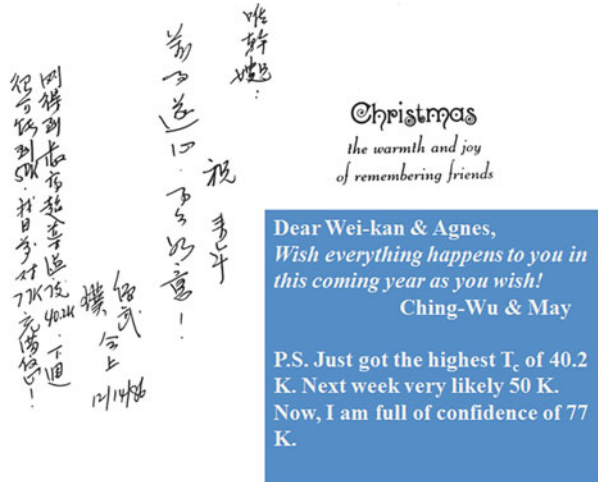 唯幹
祝 來年
萬事遂心．事事如意！
經武
仝上
12/14/86
剛得到最高超導溫度40.2K．下週
很可能到50K．我目前對77K充滿信心！
Christmas
the warmth and joy
of remembering friends
Dear Wei-kan & Agnes,
Wish everything happens to you in
this coming year as you wish!
Ching-Wu & May
P.S. Just got the highest Tc of 40.2
K. Next week very likely 50 K.
Now, I am full of confidence of 77
K.